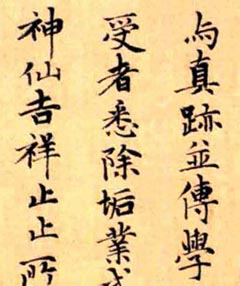 与真跡並傳學
受者悉除垢業
神仙吉祥止止所